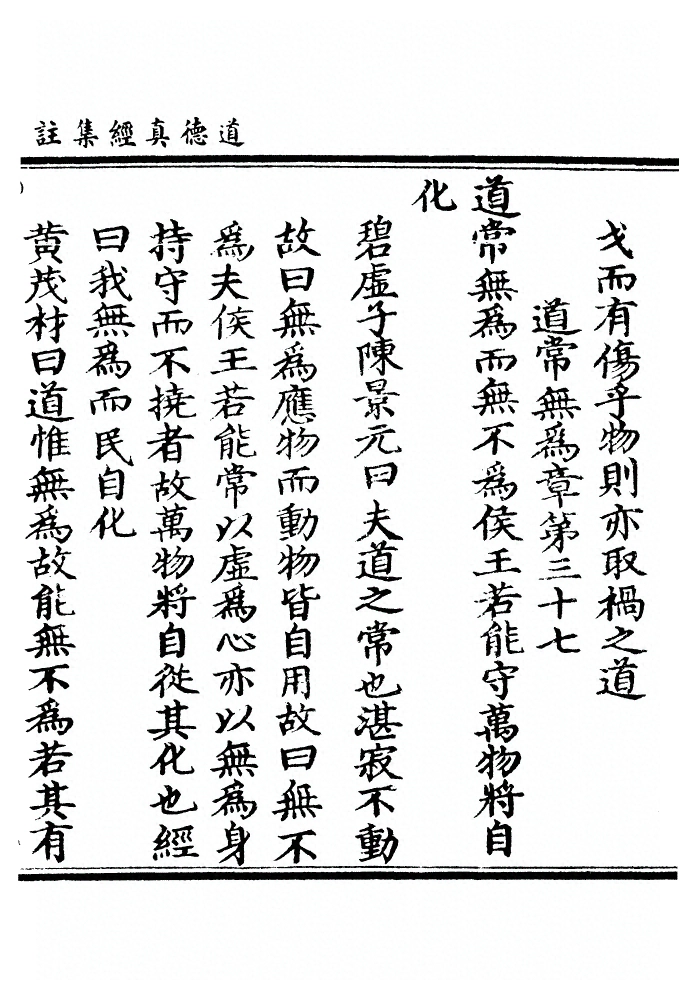 道德真經集註
戈而有傷乎物則亦取禍之道
道常無為章第三十七
道常無為而無不為侯王若能守萬物將自
化
碧虛子陳景元曰夫道之常也湛寂不動
故曰無為應物而動物皆自用故曰無不
為夫侯王若能常以虛為心亦以無為身
持守而不撓者故萬物將自從其化也經
曰我無為而民自化
黃茂材曰道惟無為故能無不為若其有